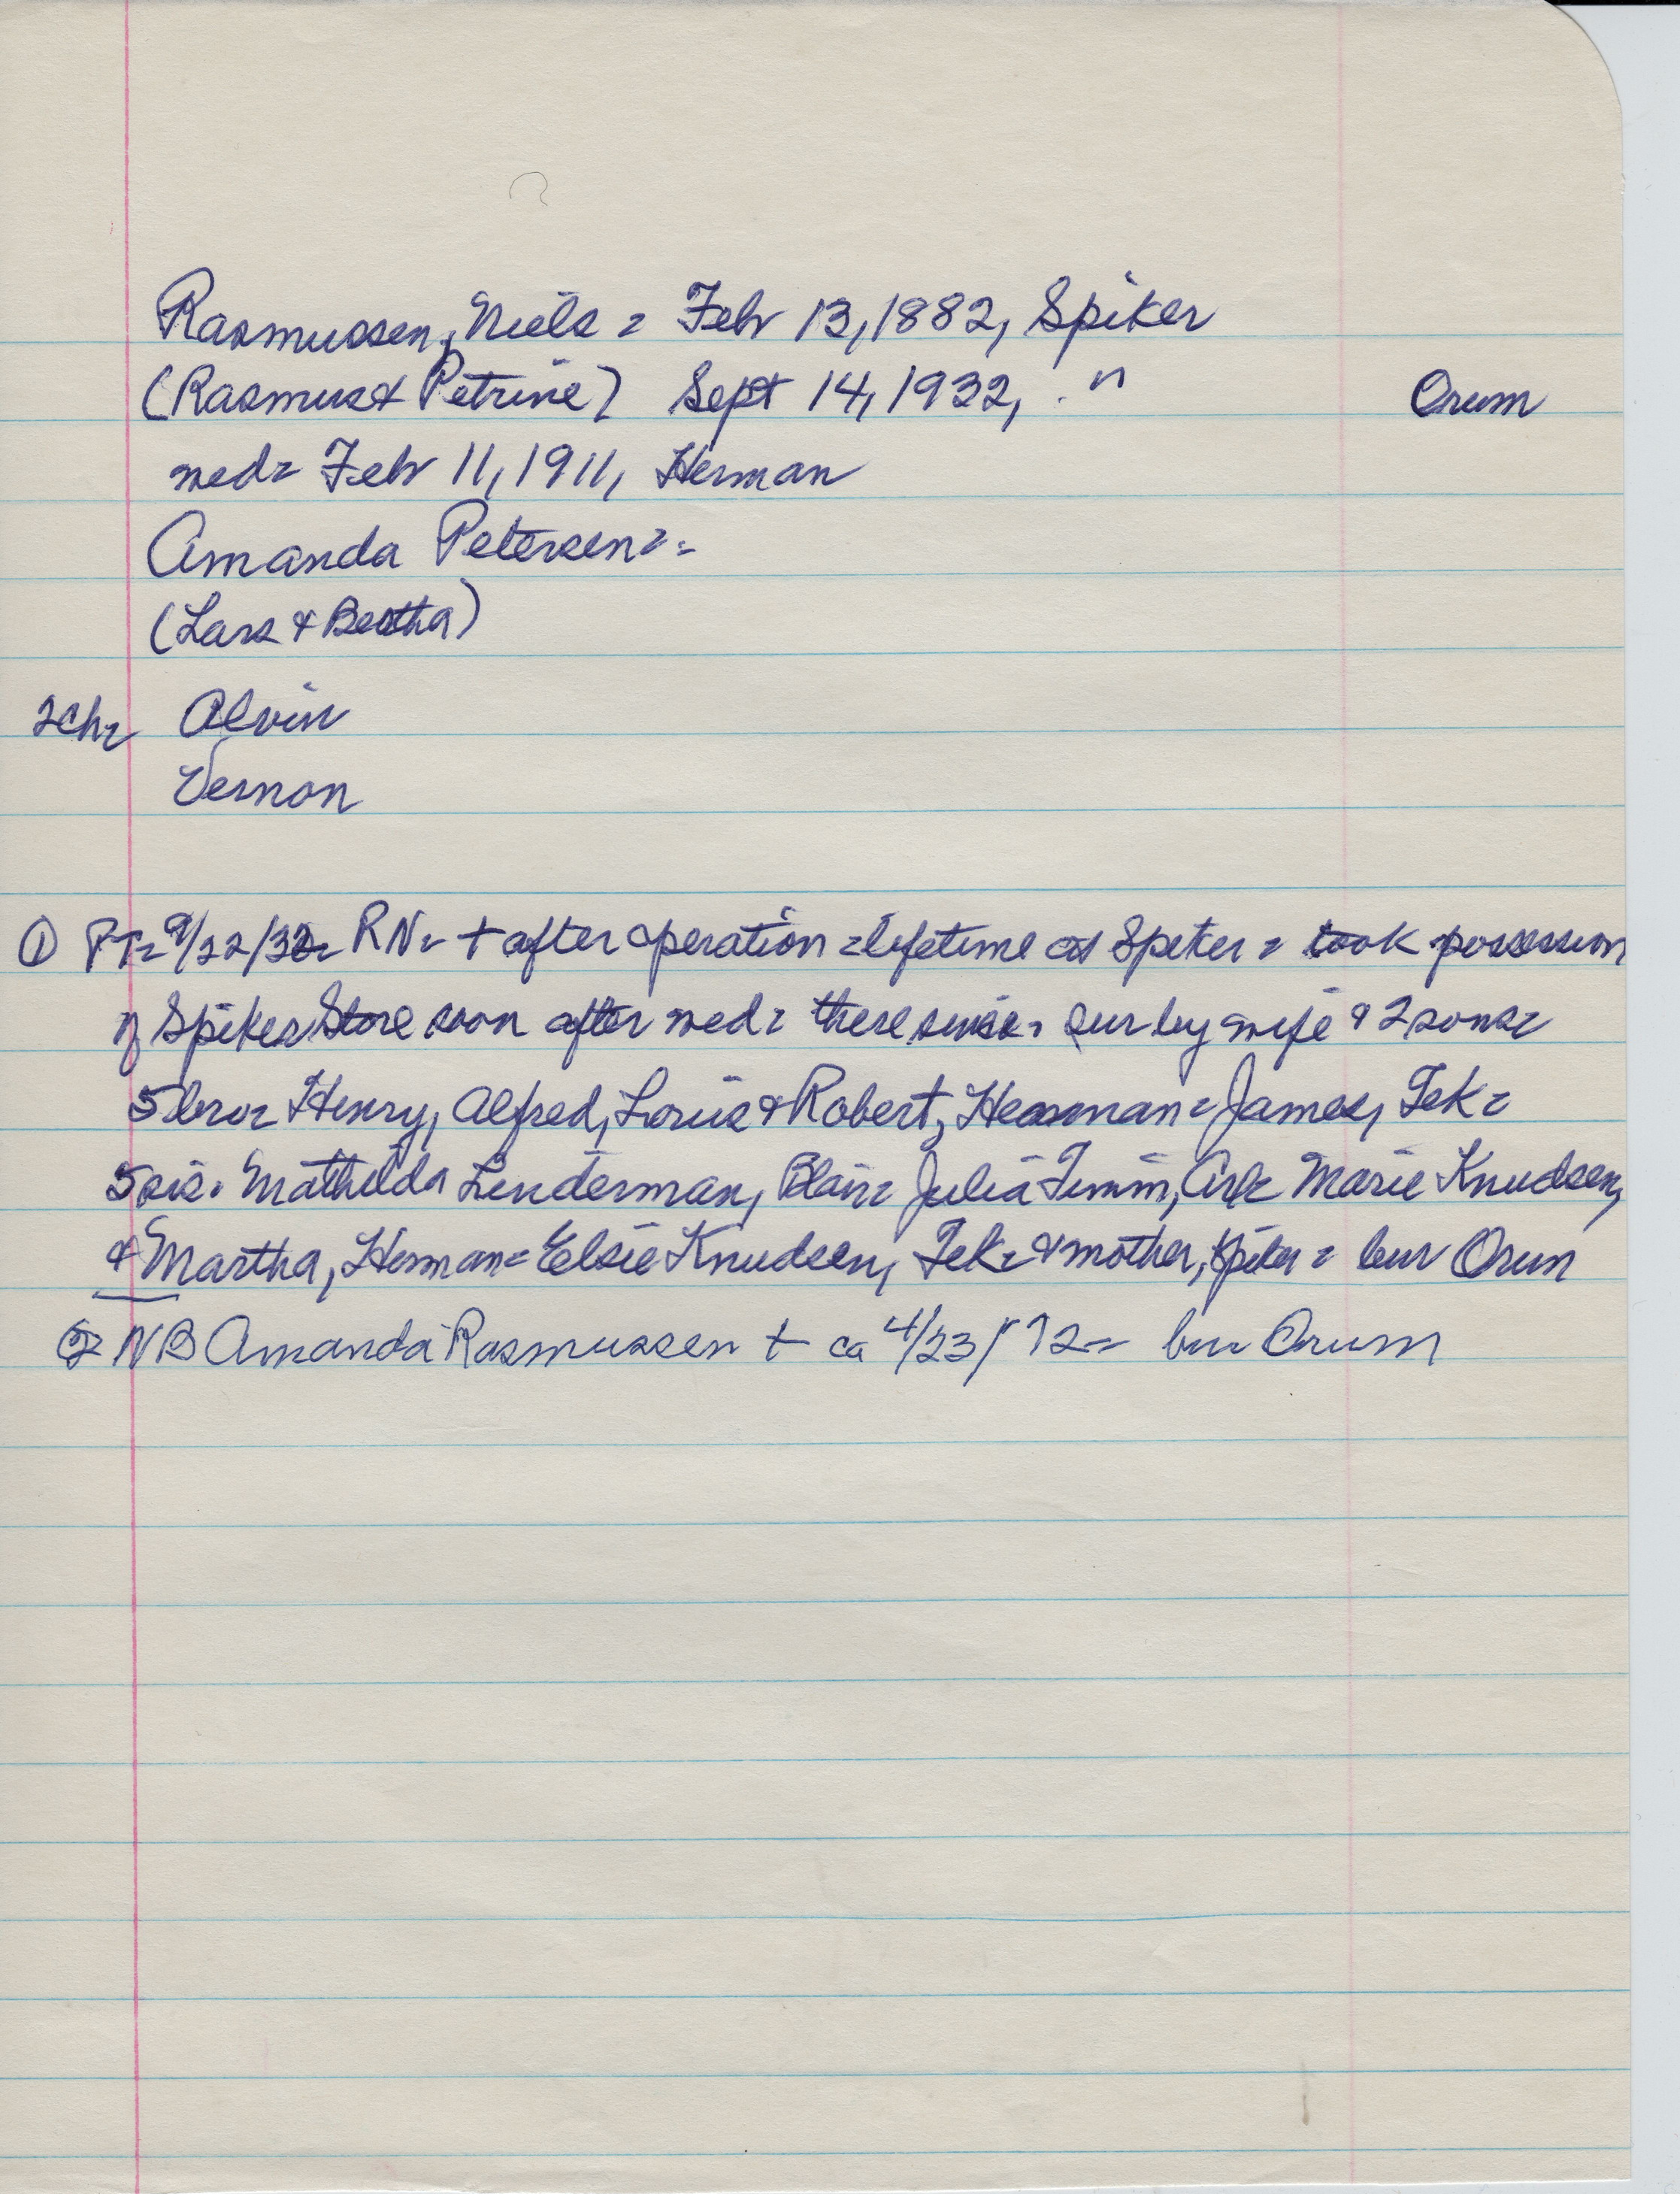 Rasmussen, Niels = Feb 13, 1882, Spiker
(Rasmus & Petrine) Sept 14, 1932, " Orum
wed = Feb 11, 1911, Herman
Amanda Petersen =
(Lars & Bertha)
2 ch = Alvin
Vernon
① PT = 9/22/32 = RN = + after operation = lifetime at Spiker = took possession
of Spiker Store soon after wed = there since = sur by wife & 2 sons =
5 bro = Henry, Alfred, Louis & Robert, Herman = James, Tek =
5 sis = Mathilda Linderman, Blair = Julia Timm, Arl = Marie Knudsen,
& Martha, Herman = Elsie Knudsen, Tek = & mother, Spiker = bur Orum
② NB Amanda Rasmussen + ca 4/23/72 = bur Orum